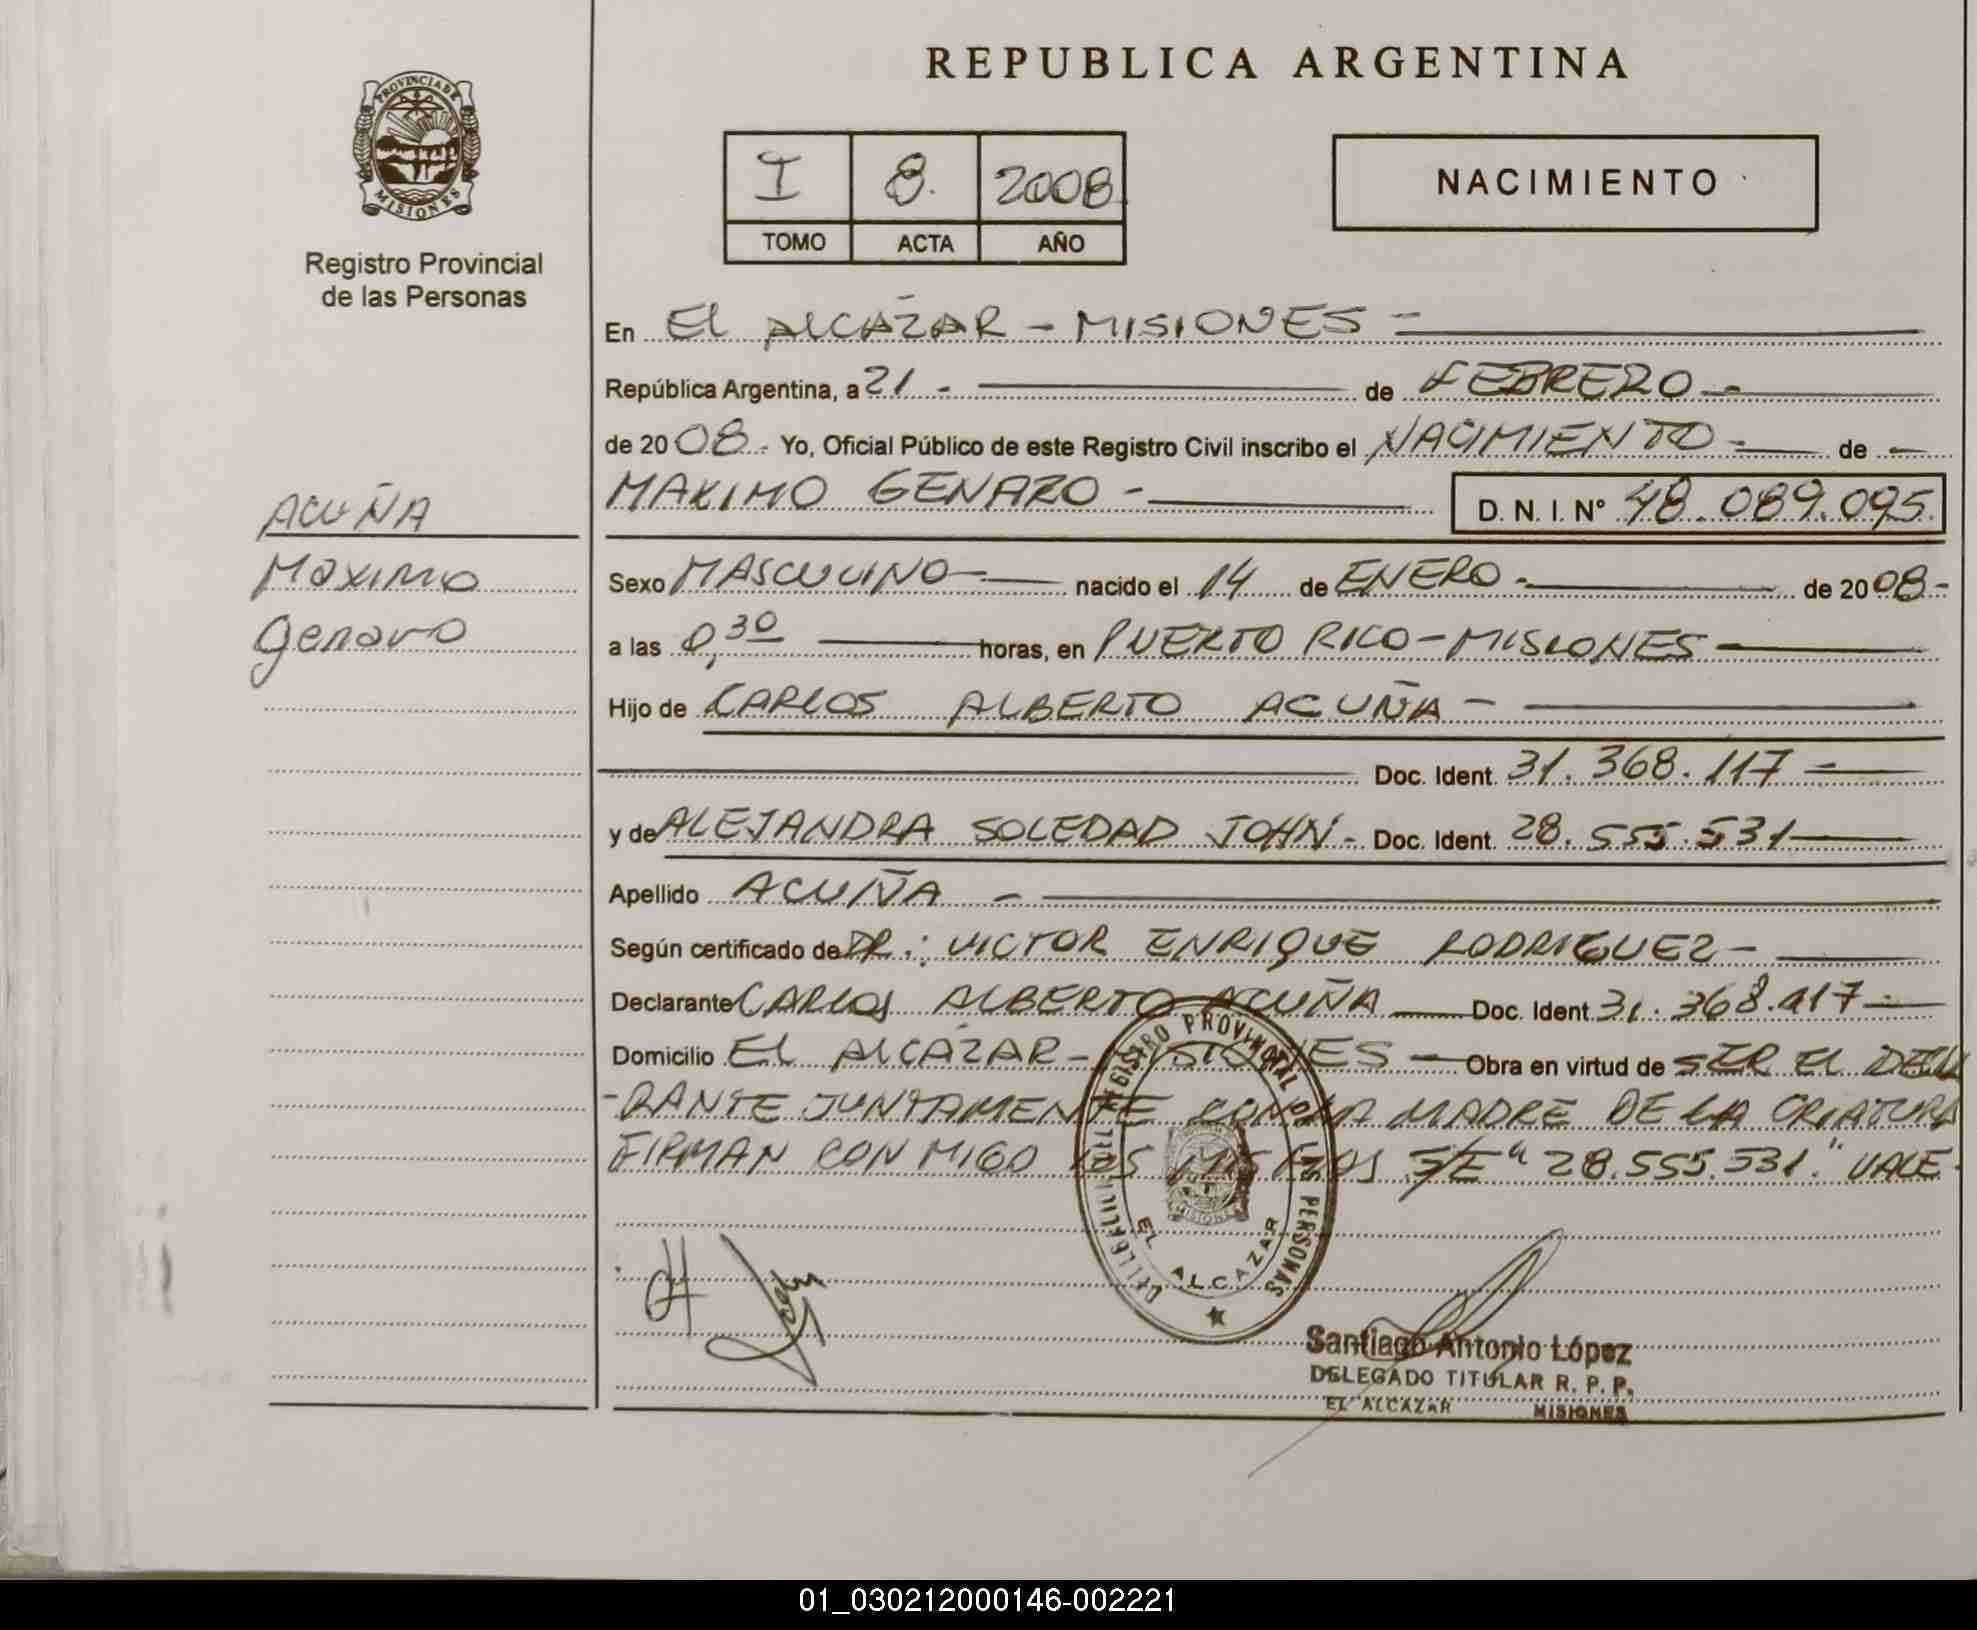 REPUBLICA ARGENTINA
PROVINCIA DE
MISIONES
Registro Provincial
de las Personas
I 8. 2008
TOMO ACTA AÑO
NACIMIENTO
En EL ALCAZAR - MISIONES -
República Argentina, a 21 - de FEBRERO -
de 2008.- Yo, Oficial Público de este Registro Civil inscribo el NACIMIENTO - de -
MAXIMO GENARO - D. N. I. Nº 48.089.095.
ACUÑA
Maximo
Genaro
Sexo MASCULINO - nacido el 14 de ENERO - de 2008-
a las 0,30 horas, en PUERTO RICO - MISIONES -
Hijo de CARLOS ALBERTO ACUÑA -
Doc. Ident. 31.368.117 -
y de ALEJANDRA SOLEDAD JOHN - Doc. Ident. 28.555.531
Apellido ACUÑA -
Según certificado de DR.: VICTOR ENRIQUE RODRIGUEZ -
Declarante CARLOS ALBERTO ACUÑA Doc. Ident. 31.368.117 -
Domicilio EL ALCAZAR - MISIONES - Obra en virtud de SER EL DECLA
-RANTE JUNTAMENTE CON LA MADRE DE LA CRIATURA
FIRMAN CON MIGO LOS MISMOS S/E "28.555.531." VALE-
REGISTRO PROVINCIAL DE LAS PERSONAS
MISIONES
EL ALCAZAR
Santiago Antonio López
DELEGADO TITULAR R. P. P.
EL ALCAZAR MISIONES
01_030212000146-002221